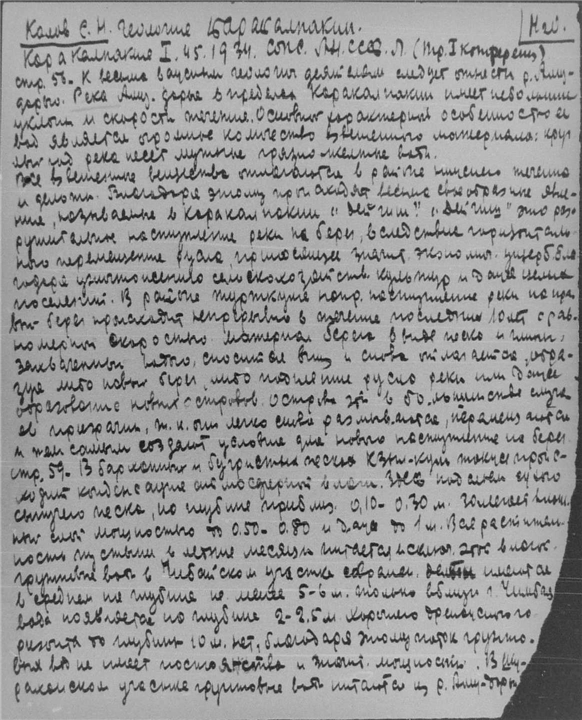 Колов С. Н. Геология Каракалпакии. Н20.
Каракалпакия I. 45. 1934. СОПС. АН. СССР. Л. (Тр. I конференц)
стр. 53. К весьма важным геология деятелям следует отнести р. Аму-
дарью. Река Аму-дарья в пределах Каракалпакии имеет небольшие
уклоны и скорости течения. Основной характерной особенностью её
вод является огромное количество взвешенного материала: круг-
лый год река несет мутные грязно-желтые воды.
Все взвешенные вещества отлагаются в районе нижнего течения
и дельты. Благодаря этому происходят весьма своеобразные явле-
ния, называемые в Каракалпакии "Дейгиш". "Дейгиш" это раз-
рушительное наступление реки на берег, вследствие горизонталь-
ного перемещения русла, приносящее значит. экономич. ущерб бла-
годаря уничтожению сельскохозяйств. культур и даже целых
поселений. В районе Турткуля напр. наступление реки на пра-
вый берег происходит непрерывно в течение последних 10 лет с рав-
номерной скоростью. Материал берега в виде песка и глины,
захваченный водою, сносится вниз и снова отлагается, обра-
зуя либо новый берег, либо повышение русла реки или даже
образование новых островов. Острова эти в большинстве случа-
ев призрачны, т. к. они легко снова размываются, перемещаются
и тем самым создают условия для нового наступления на берег.
стр. 59. В барханных и бугристых песках Кзыл-кум также проис-
ходит конденсация атмосферной влаги. Здесь под слоем сухого
сыпучего песка, на глубине приблиз. 0,10-0.30 м. залегает влаж-
ный слой мощностью до 0.50-0.80 и даже до 1 м. Вся раститель-
ность пустыни в летние месяцы питается исключ. этой влагой.
грунтовые воды в Чимбайском участке соврамен. имеются
в среднем на глубине не менее 5-6 м. только вблизи г. Чимбая
вода появляется на глубине 2-2.5 м. Хорошего дренажного го-
ризонта до глубины 10 м. нет, благодаря этому поток грунто-
вых вод не имеет постоянства и значит. мощности. В Шу-
раханском участке грунтовые воды питаются из р. Аму-дарьи